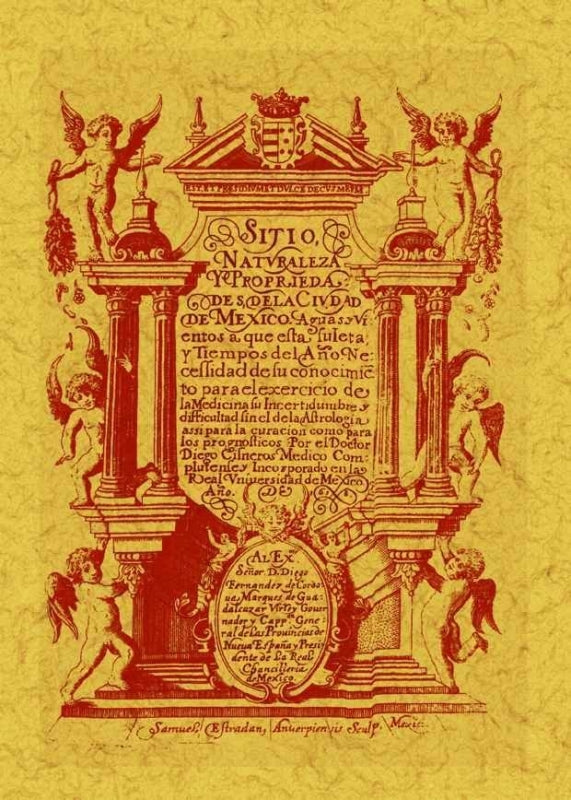 EST ET PRESIDIUM ET DVLCE DECVS MEVM
SITIO,
NATVRALEZA
Y PROPRIEDA,
DES, DE LA CIVDAD
DE MEXICO. Aguas y Vi
entos a que esta suieta;
y Tiempos del Año. Ne
cessidad de su conocimiē
to para el exercicio de
la Medicina su Incertidumbre y
difficultad sin el de la Astrologia
assi para la curacion como para
los prognosticos. Por el Doctor
Diego Cisneros Medico Com
plutense y Incorporado en la
Real Vniversidad de Mexico
Año. DE
AL Ex.
Señor D. Diego
Fernandez de Cordo
ua, Marques de Gua
dalcazar Virey Gouer
nador y Capp.n Gene
ral de las Prouincias de
Nueua España y Presi
dente de la Real
Chancilleria
de Mexico
Samuel, Estradan, Anuerpiensis Sculp. Mexic.